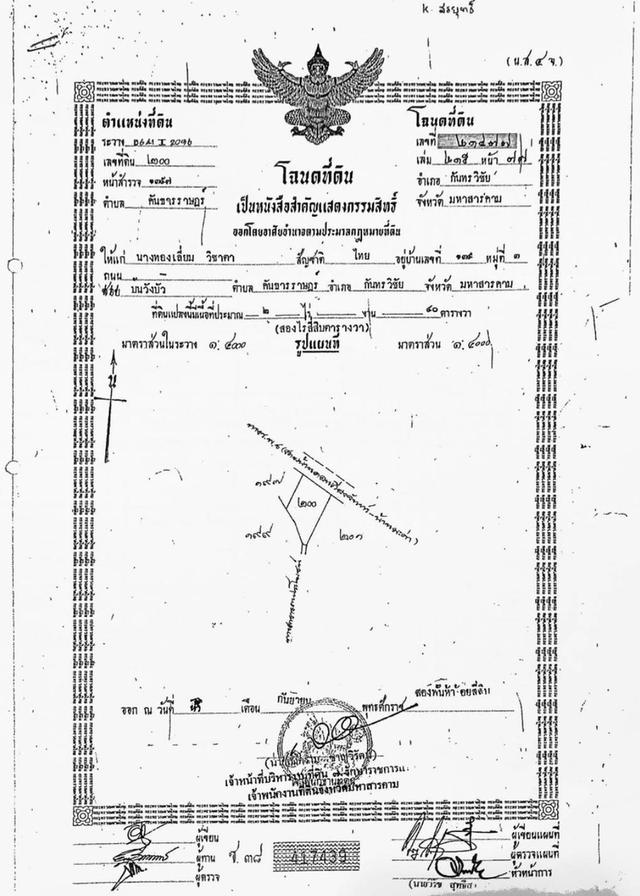 k สรยุทธ์
(น.ส. ๔ จ.)
ตำแหน่งที่ดิน
โฉนดที่ดิน
ระวาง
เลขที่ ๒๑๔๗๗
เลขที่ดิน ๒๐๐
เล่ม ๒๑๕ หน้า ๗๗
หน้าสำรวจ ๑๓๕๗
อำเภอ กันทรวิชัย
ตำบล คันธารราษฎร์
จังหวัด มหาสารคาม
โฉนดที่ดิน
เป็นหนังสือสำคัญแสดงกรรมสิทธิ์
ออกโดยอาศัยอำนาจตามประมวลกฎหมายที่ดิน
ให้แก่ นางทองเลี่ยม วิชาคา สัญชาติ ไทย อยู่บ้านเลขที่ ๑๓๙ หมู่ที่ ๓
ถนน
ซอย บ้นวังบัว ตำบล คันธารราษฎร์ อำเภอ กันทรวิชัย จังหวัด มหาสารคาม
ที่ดินแปลงนี้มีเนื้อที่ประมาณ ๒ ไร่ งาน ๔๐ ตารางวา
(สองไร่สี่สิบตารางวา)
มาตราส่วนในระวาง ๑:๔๐๐๐ รูปแผนที่ มาตราส่วน ๑:๔๐๐๐
น
๑๙๗
๒๐๐
๑๙๙
๒๐๑
ทางสาธารณประโยชน์
ออก ณ วันที่ เดือน กันยายน พุทธศักราช สองพันห้าร้อยสี่สิบ
เจ้าพนักงานที่ดินจังหวัดมหาสารคาม
ผู้เขียน
ผู้ทาน
ผู้ตรวจ
ช. ๓๘
417439
ผู้เขียนแผนที่
ผู้ตรวจแผนที่
หัวหน้าการ